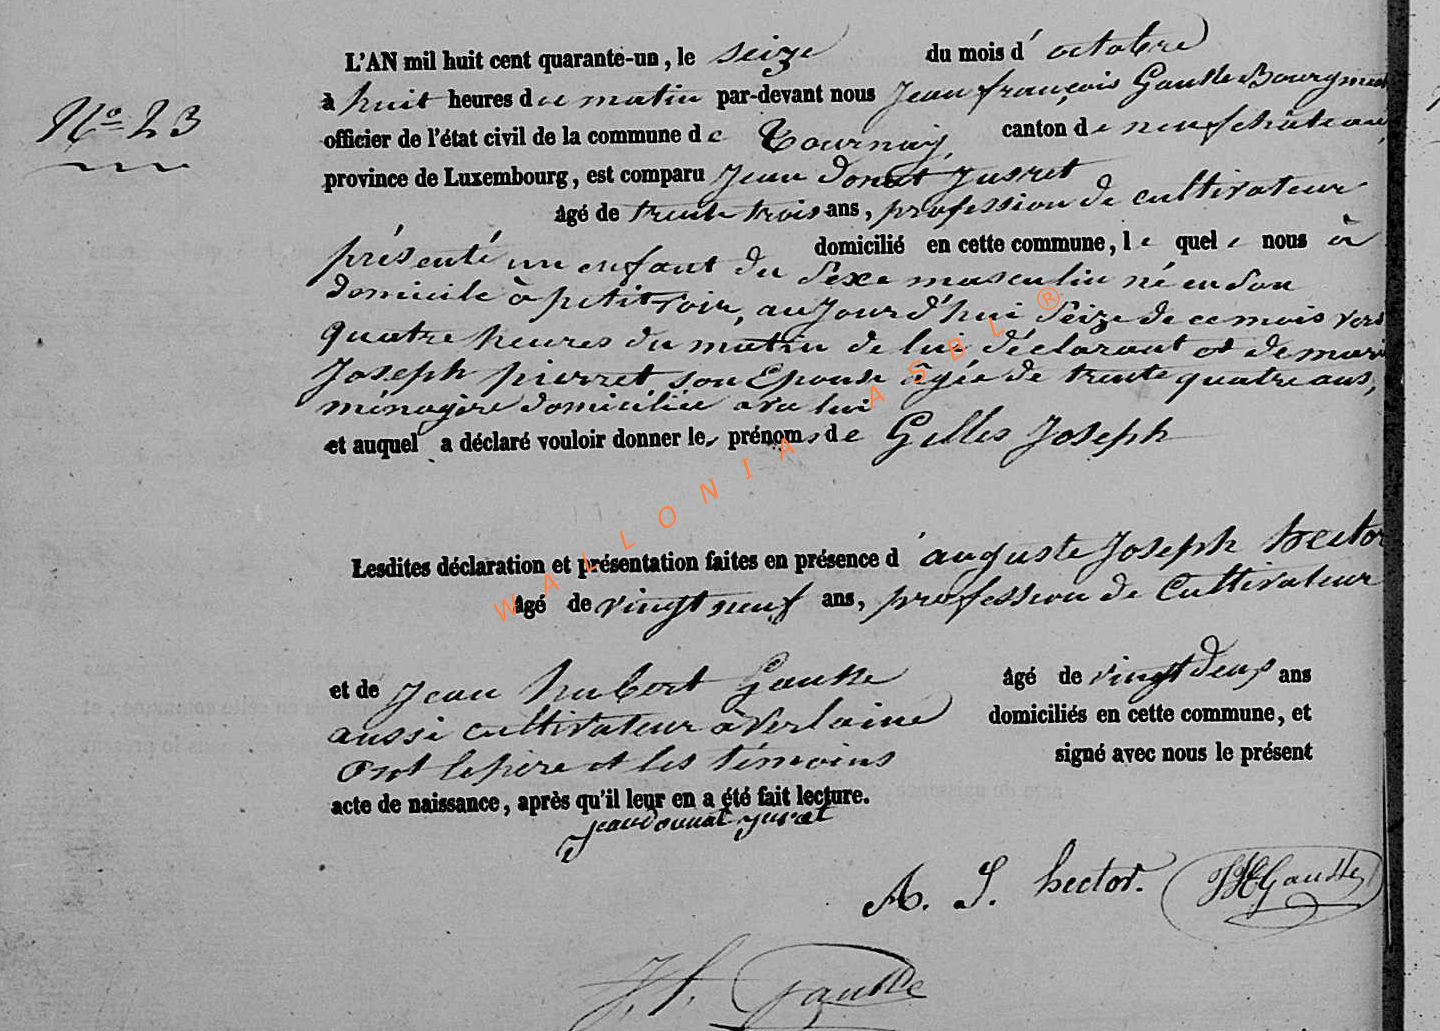 L'AN mil huit cent quarante-un, le seize du mois d'octobre
N° 23
à huit heures du matin par-devant nous Jean françois Gausse Bourgmest
officier de l'état civil de la commune de Tournay canton de neufchâteau,
province de Luxembourg, est comparu Jean Donat Jusret
âgé de trente trois ans, profession de cultivateur
domicilié en cette commune, le quel e nous à
présenté un enfant du sexe masculin né en son
domicile à petitvoir, aujourd'hui seize de ce mois vers
quatre heures du matin de lui déclarant et de marie
Joseph pierret son Epouse âgée de trente quatre ans,
ménagère domiciliée avec lui
et auquel a déclaré vouloir donner les prénoms de Gilles Joseph
Lesdites déclaration et présentation faites en présence d'auguste Joseph hector
âgé de vingt neuf ans, profession de Cultivateur
et de Jean hubert Gausse âgé de vingt deux ans
aussi cultivateur à Verlaine domiciliés en cette commune, et
Ont le père et les témoins signé avec nous le présent
acte de naissance, après qu'il leur en a été fait lecture.
jean donnat jusret
A. J. hector. JHGausse
J. f. Gausse
WALLONIA ASBL ®